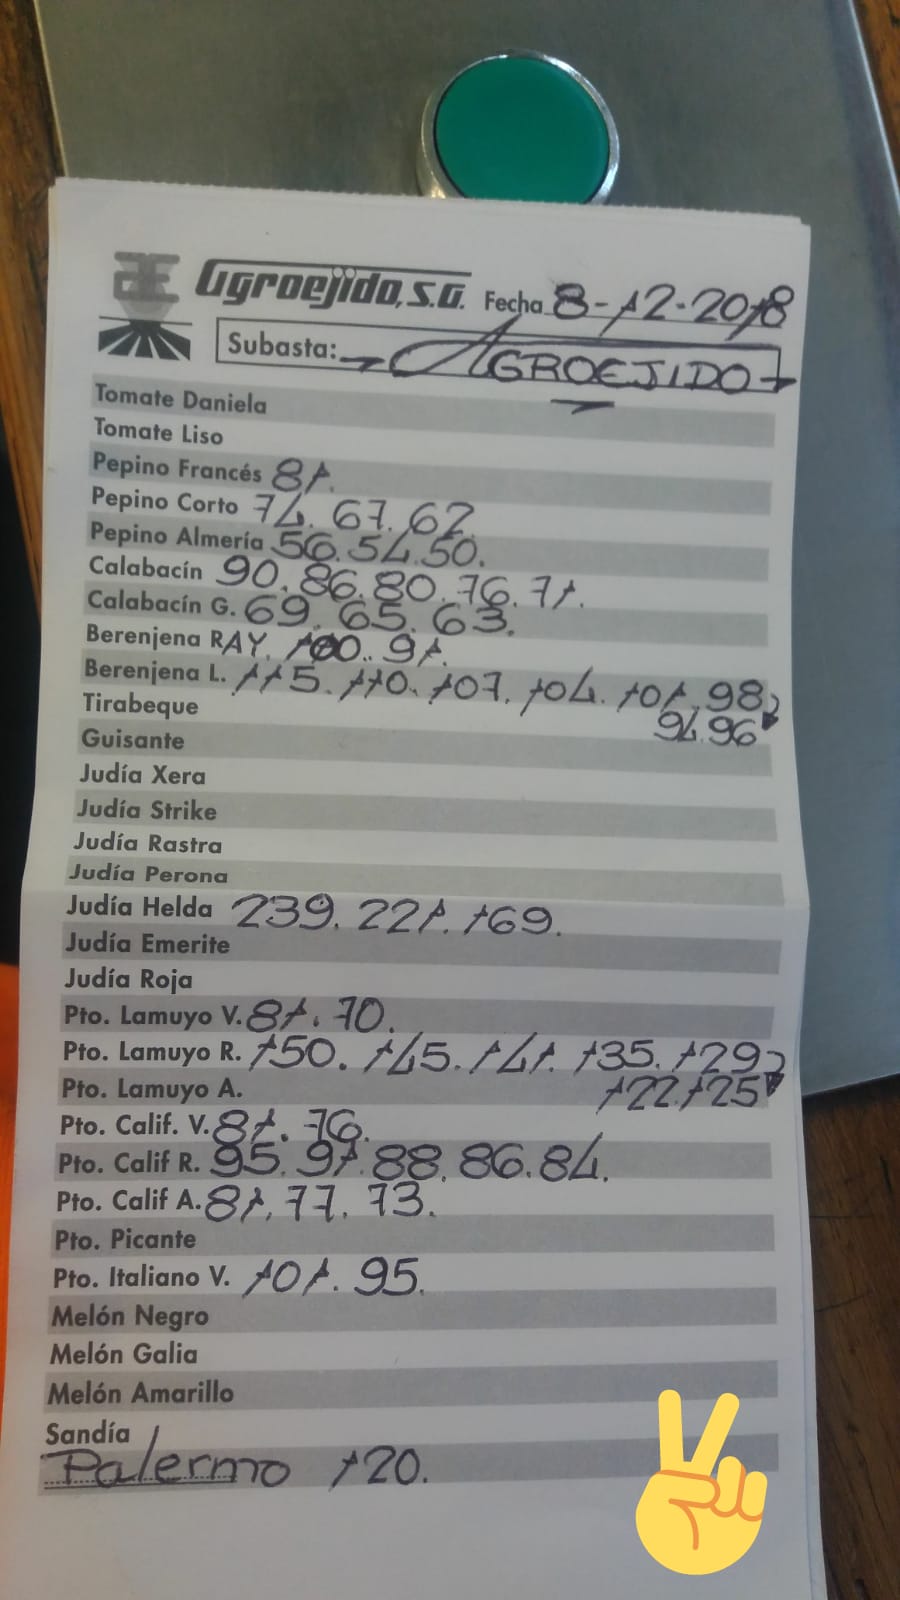 Agroejido, S.A. Fecha 8-12-2018
Subasta: AGROEJIDO
Tomate Daniela
Tomate Liso
Pepino Francés 81.
Pepino Corto 74. 67. 62.
Pepino Almería 56. 54. 50.
Calabacín 90. 86. 80. 76. 71.
Calabacín G. 69. 65. 63.
Berenjena RAY. 100. 91.
Berenjena L. 115. 110. 107. 104. 101. 98
94. 96
Tirabeque
Guisante
Judía Xera
Judía Strike
Judía Rastra
Judía Perona
Judía Helda 239. 221. 169.
Judía Emerite
Judía Roja
Pto. Lamuyo V. 81. 70.
Pto. Lamuyo R. 150. 145. 141. 135. 129
122. 125
Pto. Lamuyo A.
Pto. Calif. V. 81. 76.
Pto. Calif R. 95. 91. 88. 86. 84.
Pto. Calif A. 81. 77. 73.
Pto. Picante
Pto. Italiano V. 101. 95.
Melón Negro
Melón Galia
Melón Amarillo
Sandía
Palermo 120.